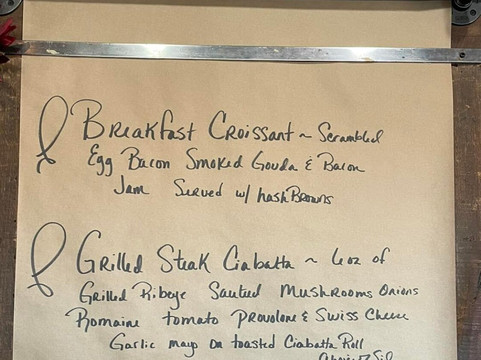 Breakfast Croissant ~ Scrambled
Egg Bacon Smoked Gouda & Bacon
Jam Served w/ hash Browns
Grilled Steak Ciabatta ~ 6oz of
Grilled Ribeye Sauteed Mushrooms Onions
Romaine tomato Provolone & Swiss Cheese
Garlic mayo on toasted Ciabatta Roll
Choice of Side